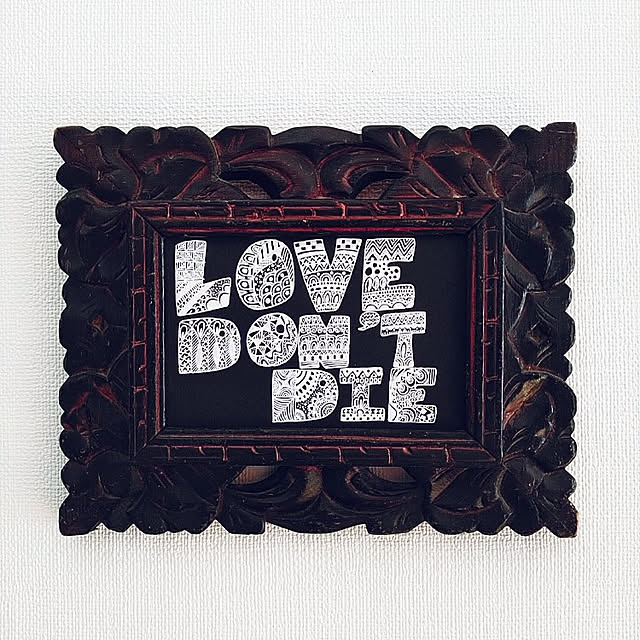 LOVE
DON'T
DIE